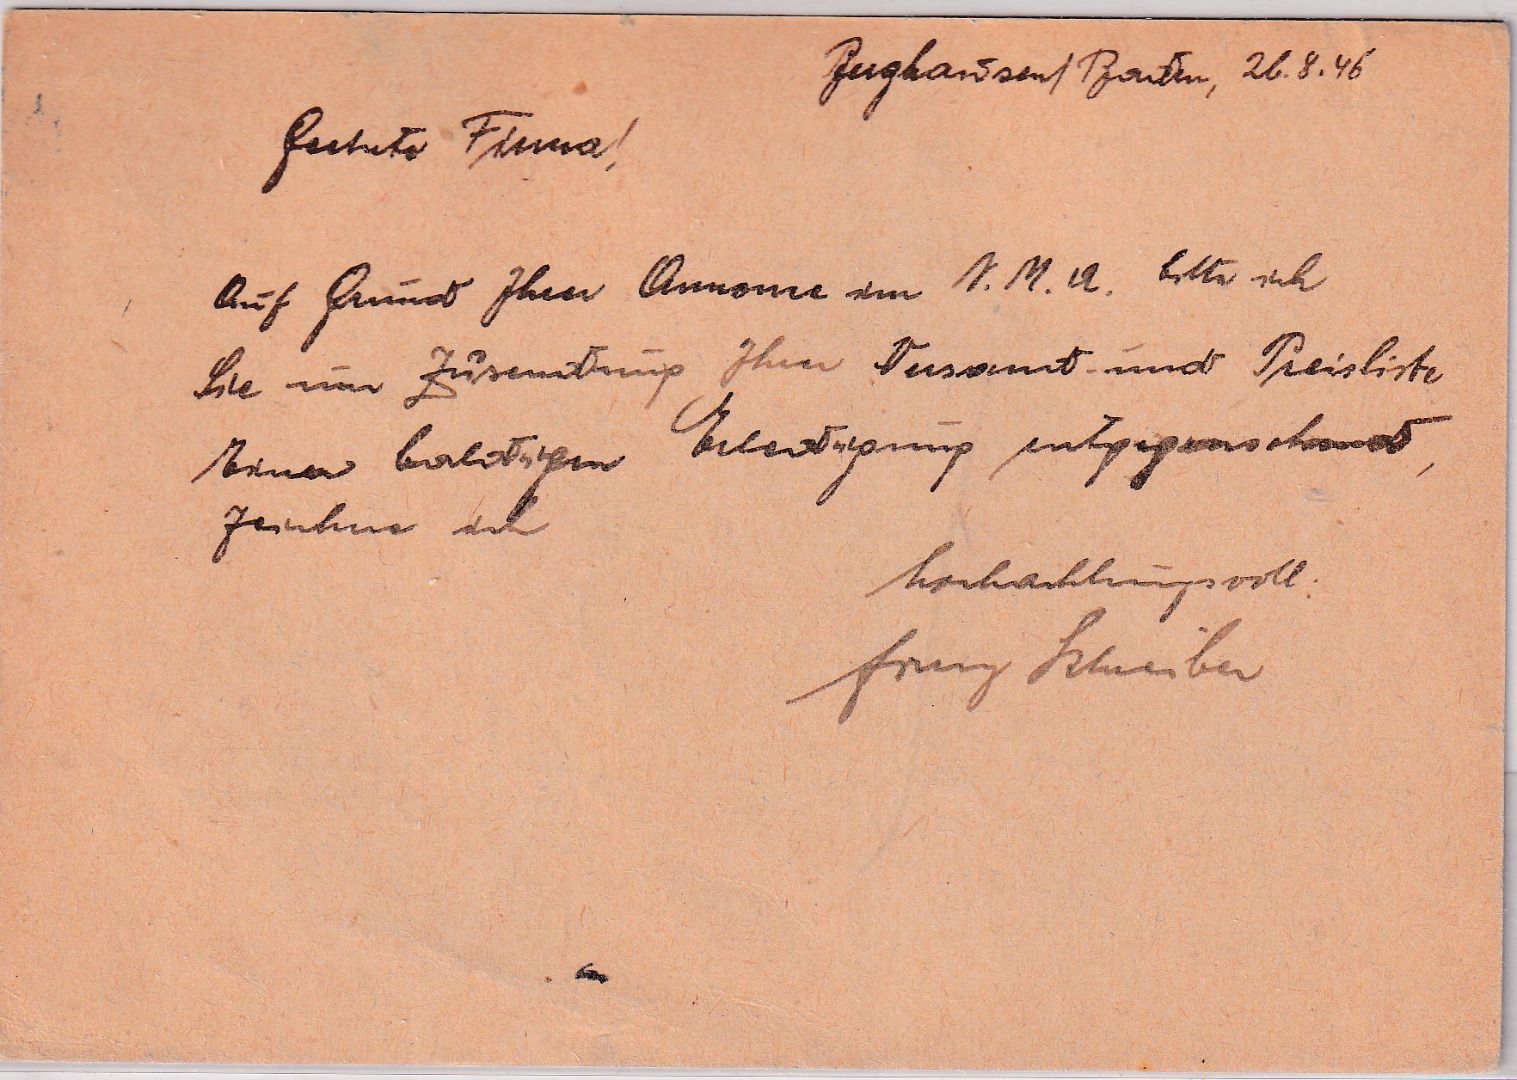 Berghausen/Baden, 26.8.46
Geehrte Firma!
Auf Grund Ihrer Annonce im N.M.A. bitte ich
Sie um Zusendung Ihrer Versand- und Preisliste
Einer baldigen Erledigung entgegensehend,
zeichne ich
hochachtungsvoll.
Franz Schreiber